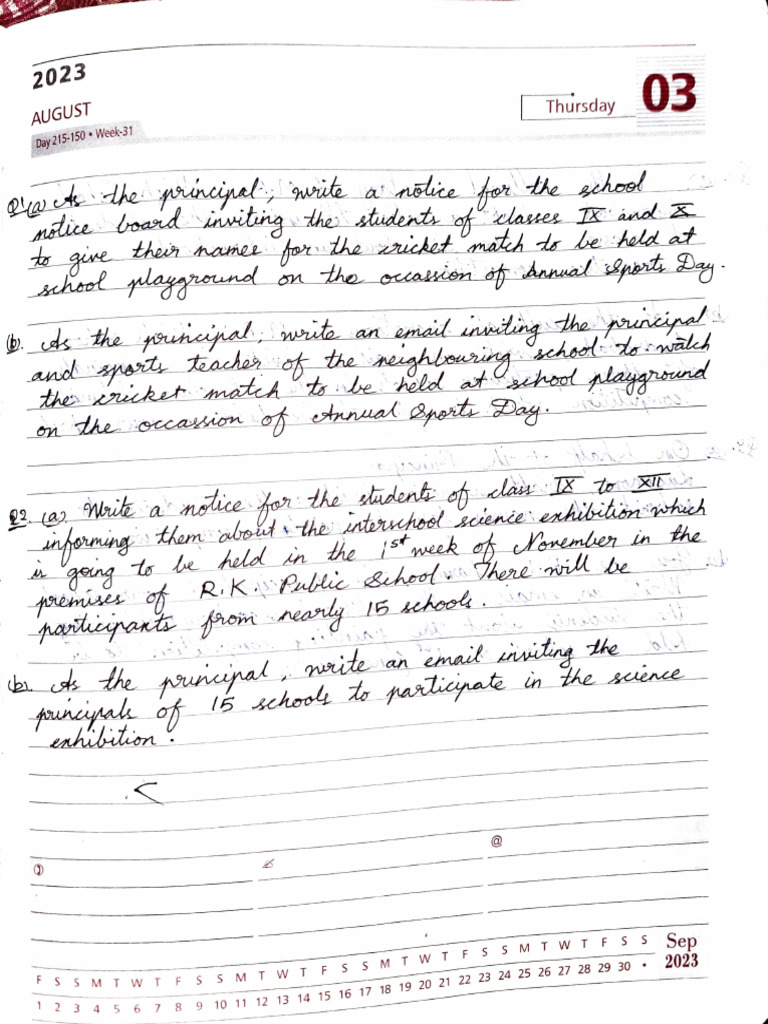 2023
AUGUST
Day 215-150 • Week-31
Thursday 03
Q1 (a) As the principal, write a notice for the school
notice board inviting the students of classes IX and X
to give their names for the cricket match to be held at
school playground on the occassion of Annual Sports Day.
(b). As the principal, write an email inviting the principal
and sports teacher of the neighbouring school to watch
the cricket match to be held at school playground
on the occassion of Annual Sports Day.
Q2. (a) Write a notice for the students of class IX to XII
informing them about the interschool science exhibition which
is going to be held in the 1st week of November in the
premises of R.K. Public School. There will be
participants from nearly 15 schools.
(b). As the principal, write an email inviting the
principals of 15 schools to participate in the science
exhibition.
@
F S S M T W T F S S M T W T F S S M T W T F S S M T W T F S S • Sep
1 2 3 4 5 6 7 8 9 10 11 12 13 14 15 16 17 18 19 20 21 22 23 24 25 26 27 28 29 30 • 2023